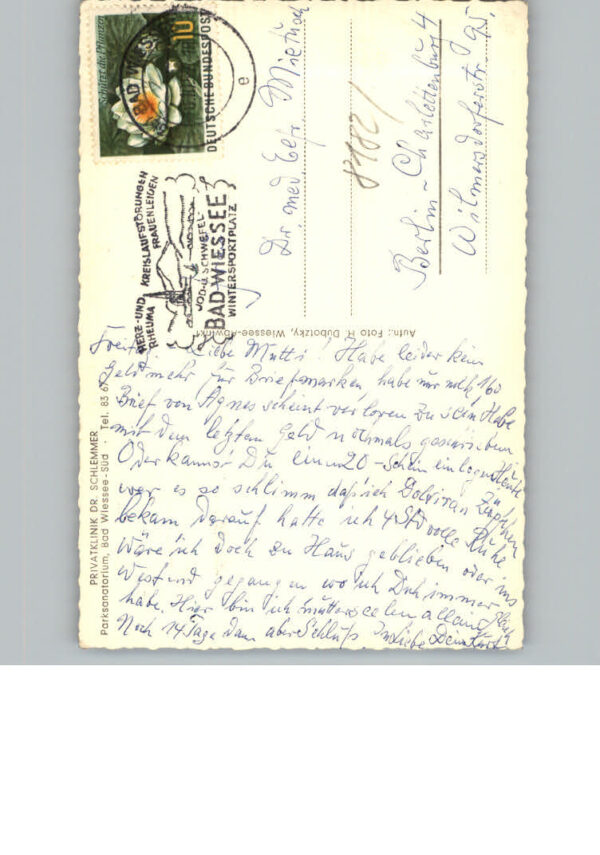 Schützt die Pflanzen
10
DEUTSCHE BUNDESPOST
BAD WIESSEE
e
HERZ- UND KREISLAUFSTÖRUNGEN
RHEUMA FRAUENLEIDEN
JOD-U. SCHWEFEL-
BAD WIESSEE
WINTERSPORTPLATZ
Dr. med
8182/
Berlin-Charlottenburg 4
Wilmersdorferstr. 95.
Aufn.: Foto H. Dubotzky, Wiessee-Abwinkl
PRIVATKLINIK DR. SCHLEMMER
Parksanatorium, Bad Wiessee-Süd · Tel. 83 67
Liebe Mutti! Habe leider kein
Geld mehr für Briefmarken, habe nur noch 1,60
Brief von Agnes scheint verloren zu sein Habe
mit dem letzten Geld nochmals geschrieben
Oder kannst Du einen 20-Schein einlegen Heute
war es so schlimm daß ich Dolviran Zäpfchen
bekam darauf hatte ich 4 Std volle Ruhe
Wäre ich doch zu Haus geblieben oder ins
Westend gegangen wo ich Dich immer
habe. Hier bin ich mutterseelen allein
Noch 14 Tage dann aber Schluß. In Liebe Dein Kurt